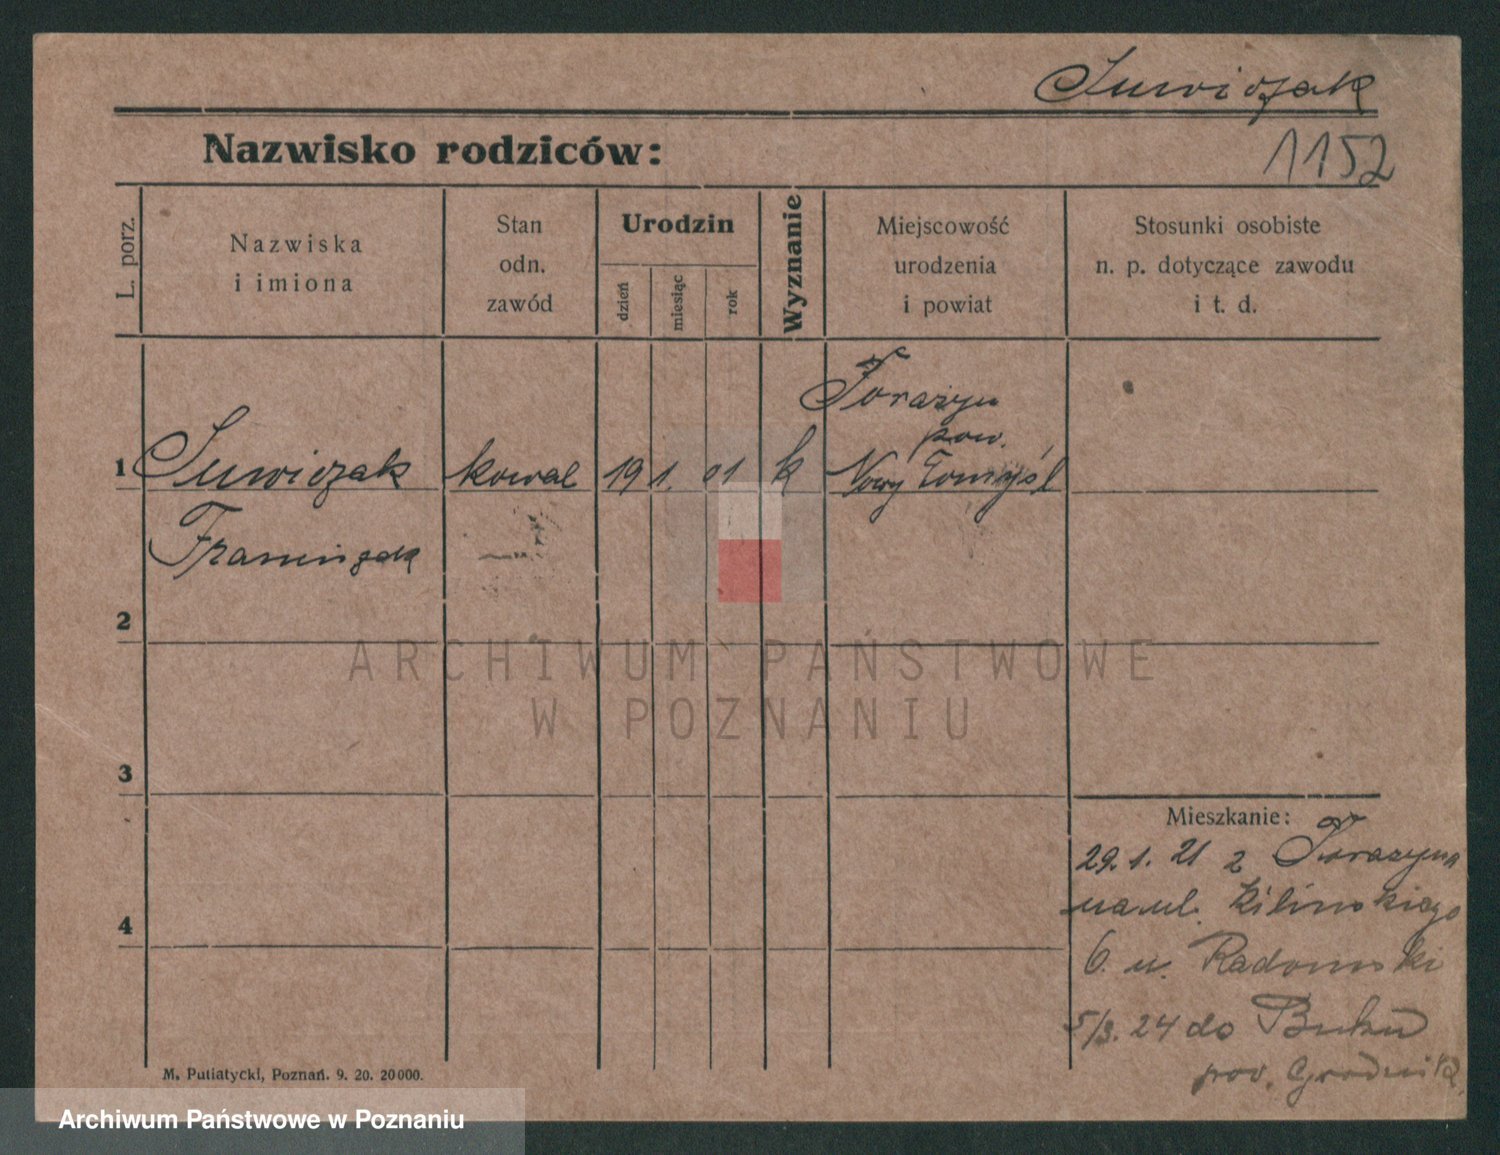 Suwiczak
Nazwisko rodziców:
1152
L. porz.
Nazwiska
i imiona
Stan
odn.
zawód
Urodzin
dzień
miesiąc
rok
Wyznanie
Miejscowość
urodzenia
i powiat
Stosunki osobiste
n. p. dotyczące zawodu
i t. d.
pow.
1 Suwiczak kowal 19 1. 01 k Nowy Tomyśl
Franciszek
2
3
4
Mieszkanie:
29.1.21 z
na ul. Kilińskiego
6. u. Radomski
5/3.24 do Buku
pow. Grodzisk
M. Putiatycki, Poznań. 9. 20. 20000.
ARCHIWUM PAŃSTWOWE
W POZNANIU
Archiwum Państwowe w Poznaniu